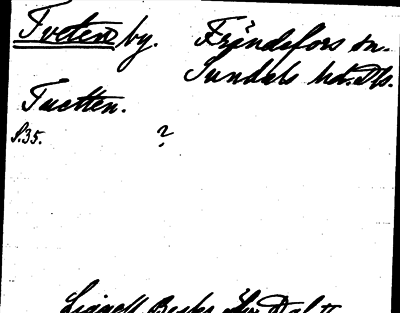 Tveten by. Fröndefors sn.
Sundals hd. Dls.
Tuetten.
S. 35. ?
Lignell Beskr. öfver Dal II